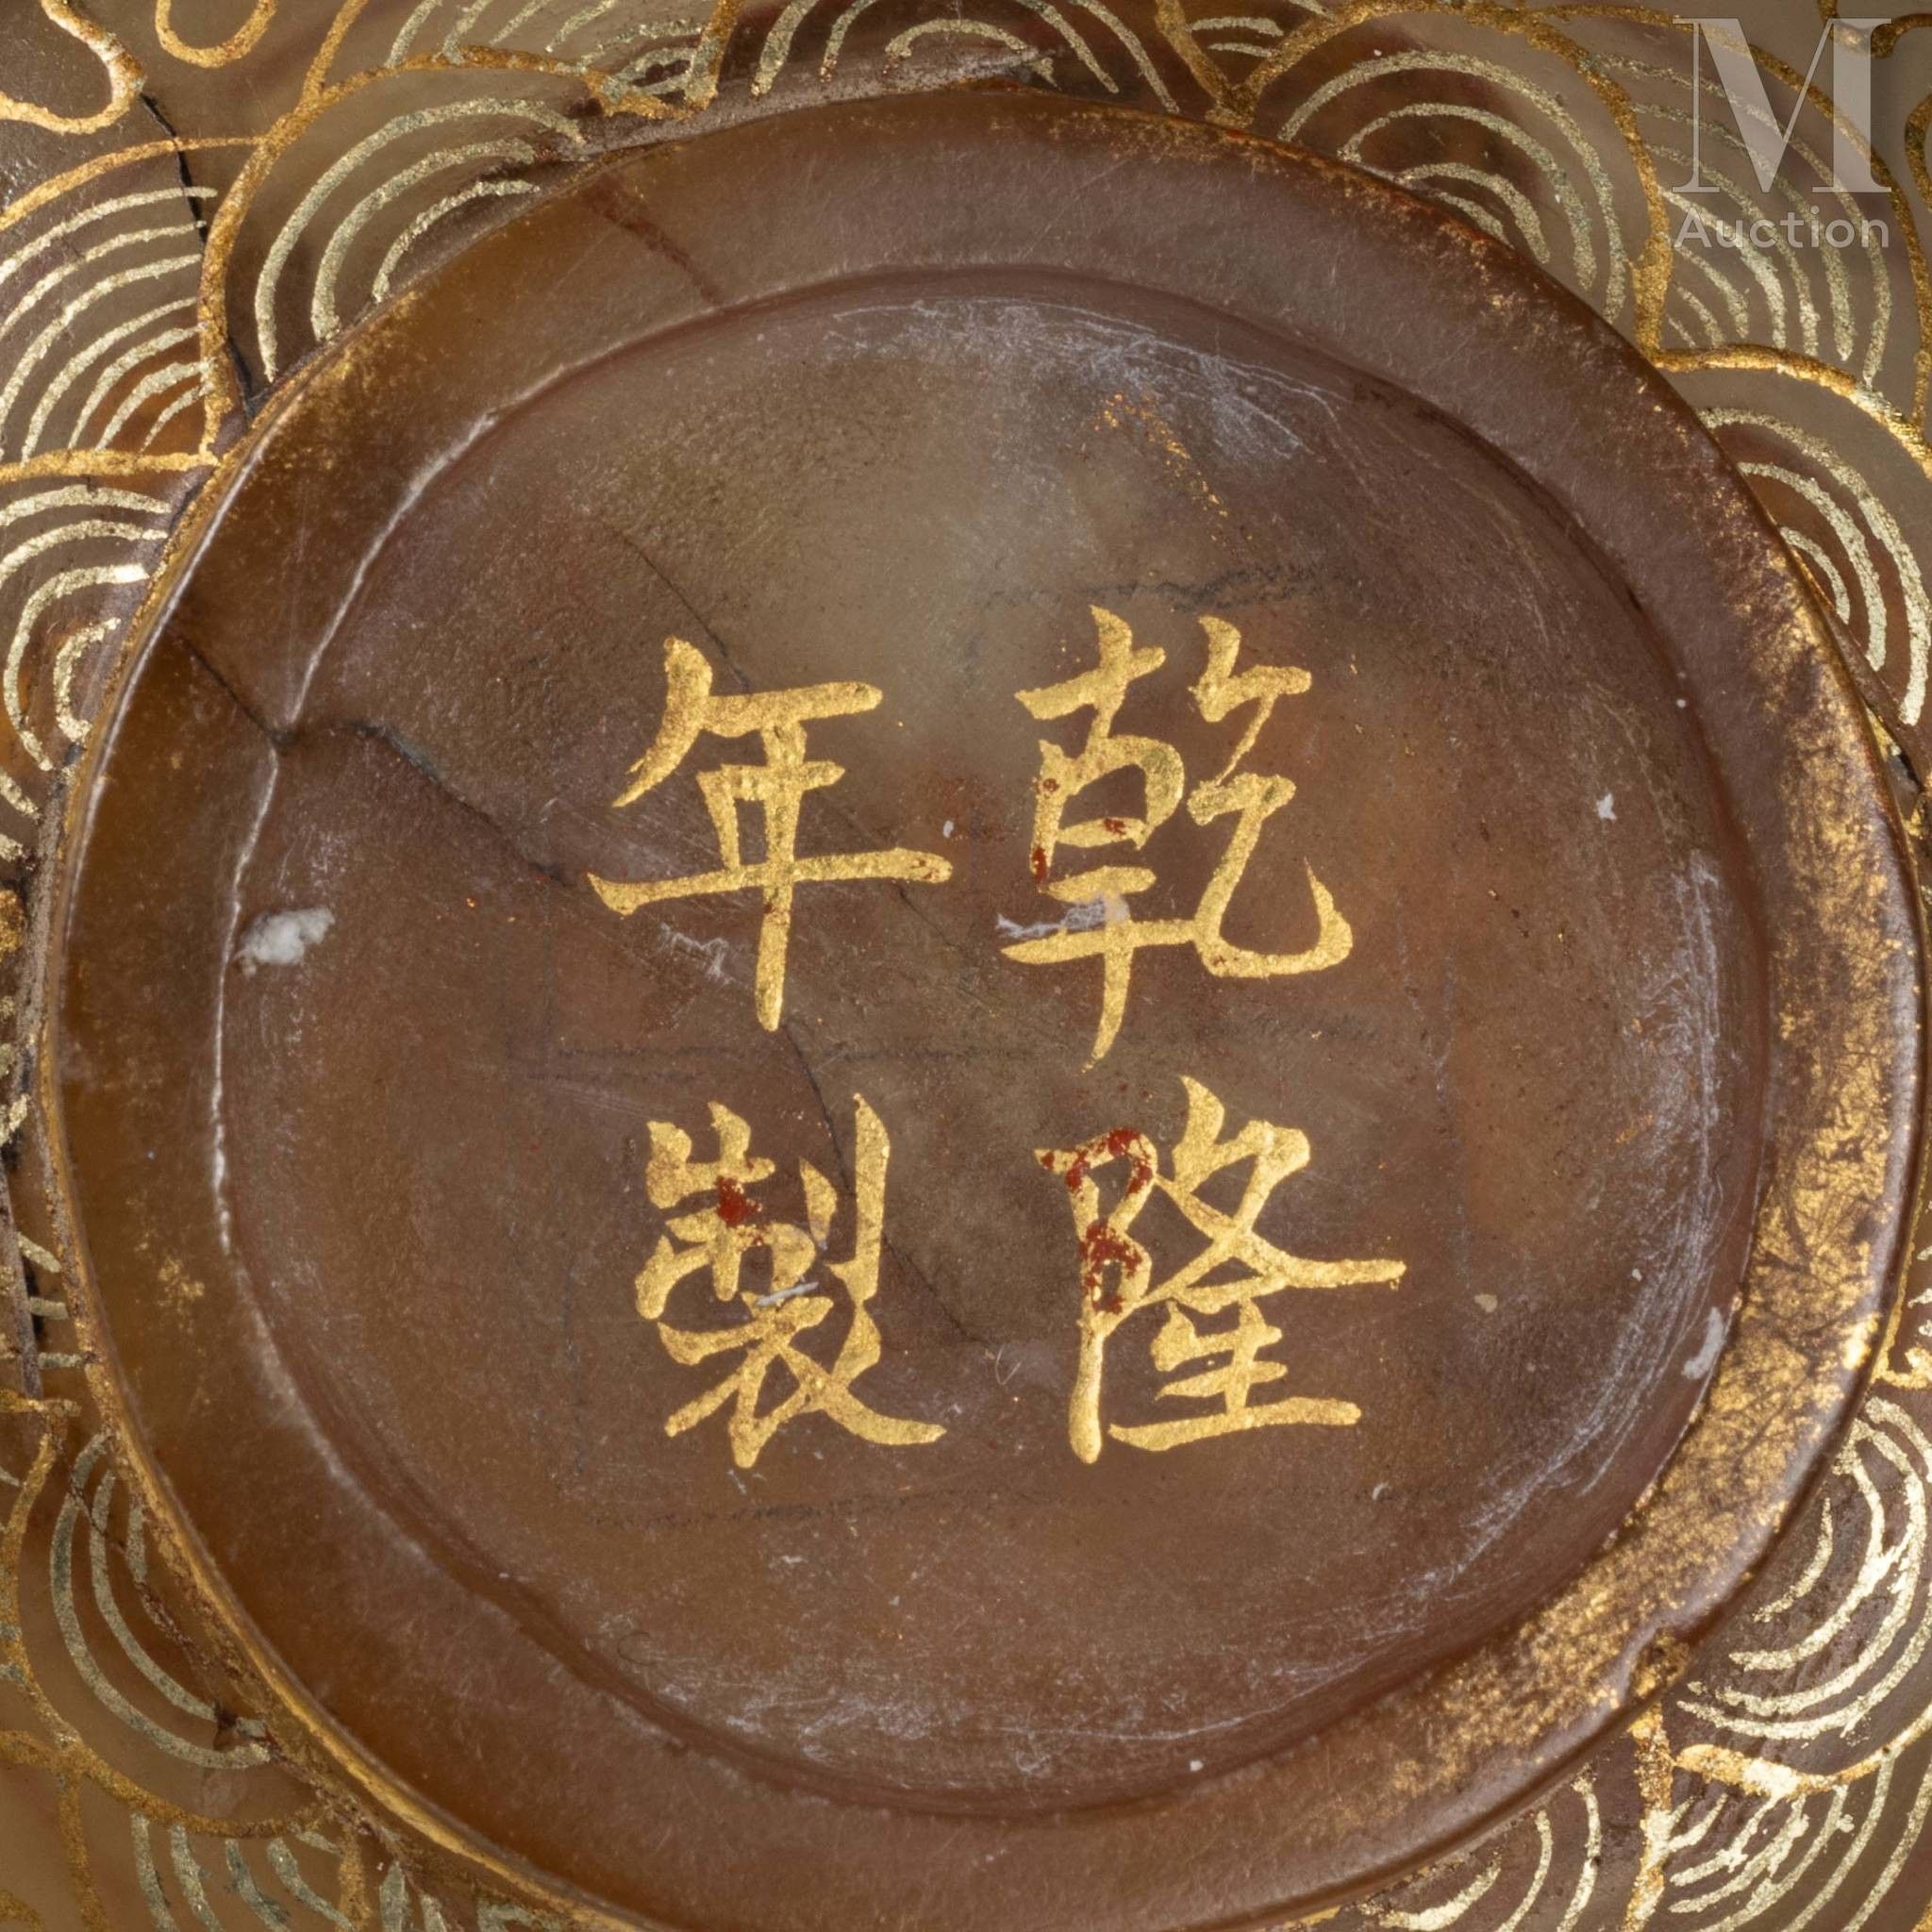 乾隆
年製
M
Auction